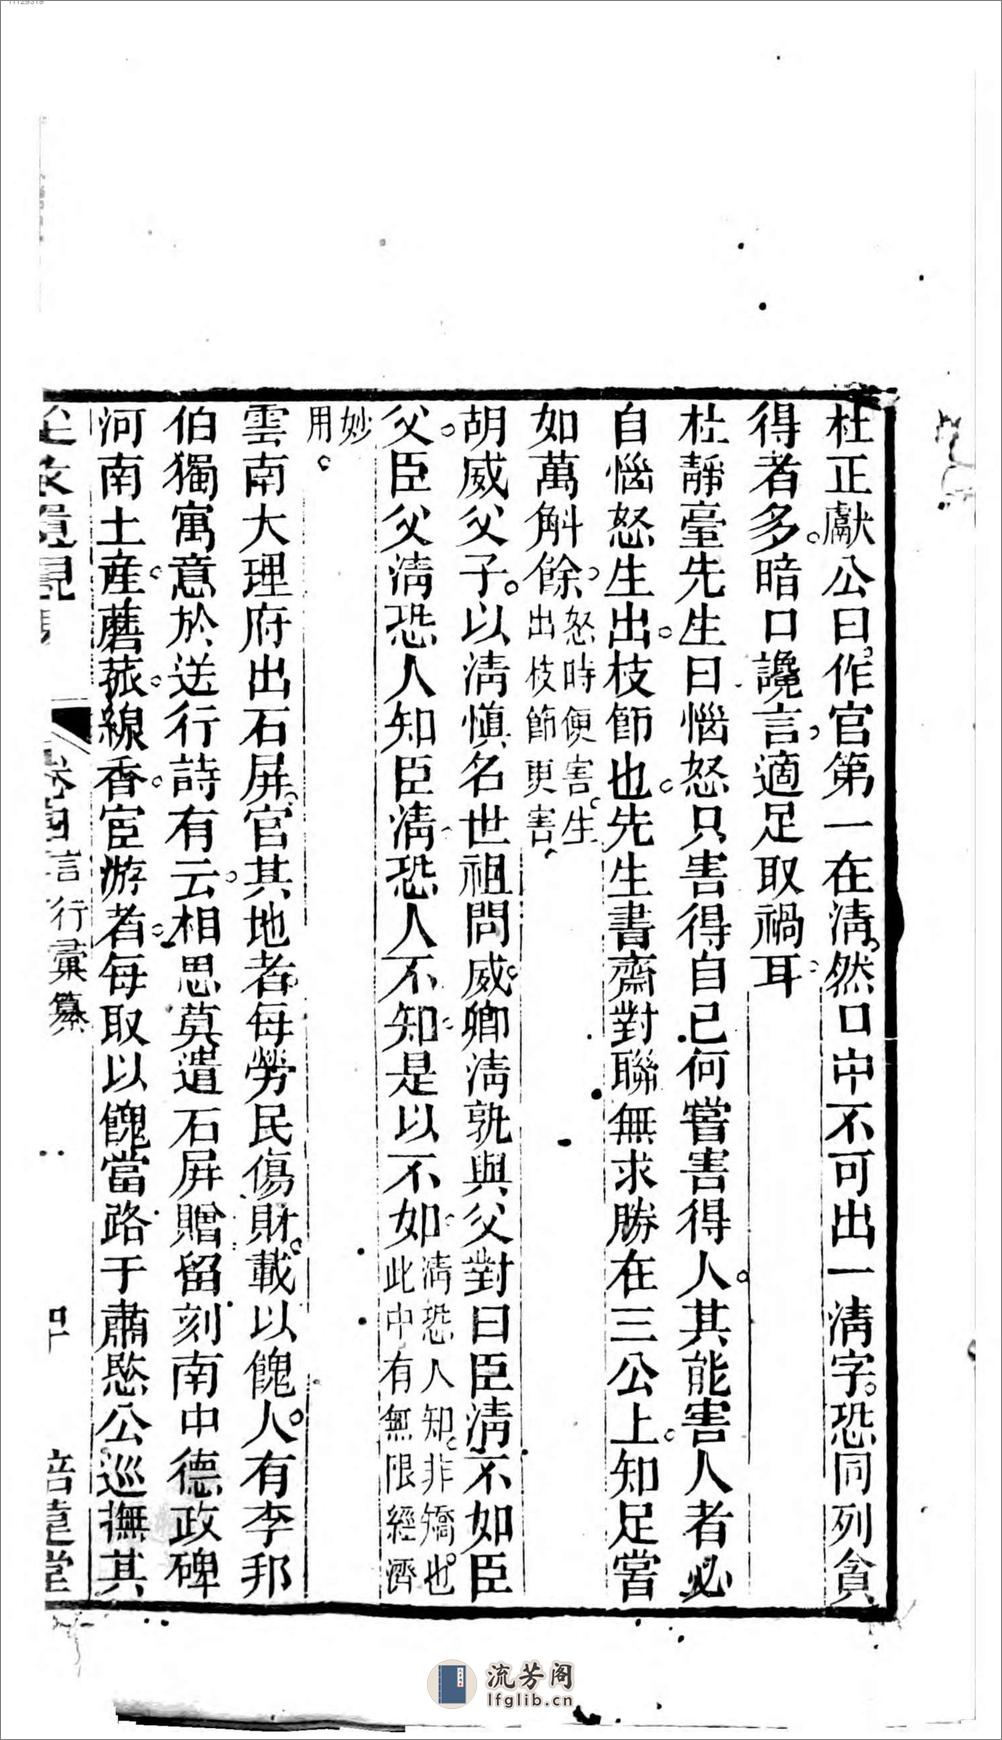 杜正獻公曰作官第一在淸然口中不可出一淸字恐同列貪
得者多暗口讒言適足取禍耳
杜靜臺先生曰惱怒只害得自己何嘗害得人其能害人者必
自惱怒生出枝節也先生書齋對聯無求勝在三公上知足嘗
如萬斛餘怒時便害生
出枝節更害
胡威父子以淸愼名世祖問威卿淸孰與父對曰臣淸不如臣
父臣父淸恐人知臣淸恐人不知是以不如淸恐人知非矯也
此中有無限經濟
妙
用
雲南大理府出石屏官其地者每勞民傷財載以餽人有李邦
伯獨寓意於送行詩有云相思莫遣石屏贈留刻南中德政碑
河南土産蘑菰線香宦游者每取以餽當路于肅愍公巡撫其
卷四言行彙纂
四十
培遠堂
流芳阁
lfglib.cn